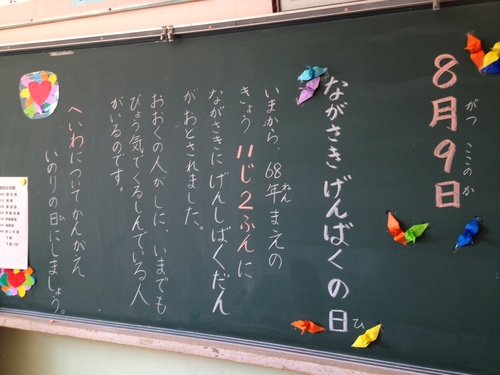 8月9日
がつ ここのか
ながさき げんばくの日
ひ
いまから、68年まえの
ねん
きょう 11じ2ふんに
ながさきに げんしばくだん
がおとされました。
おおくの人がしに、いまでも
びょう気でくるしんでいる人
がいるのです。
へいわについてかんがえ
いのりの日にしましょう。
ひ